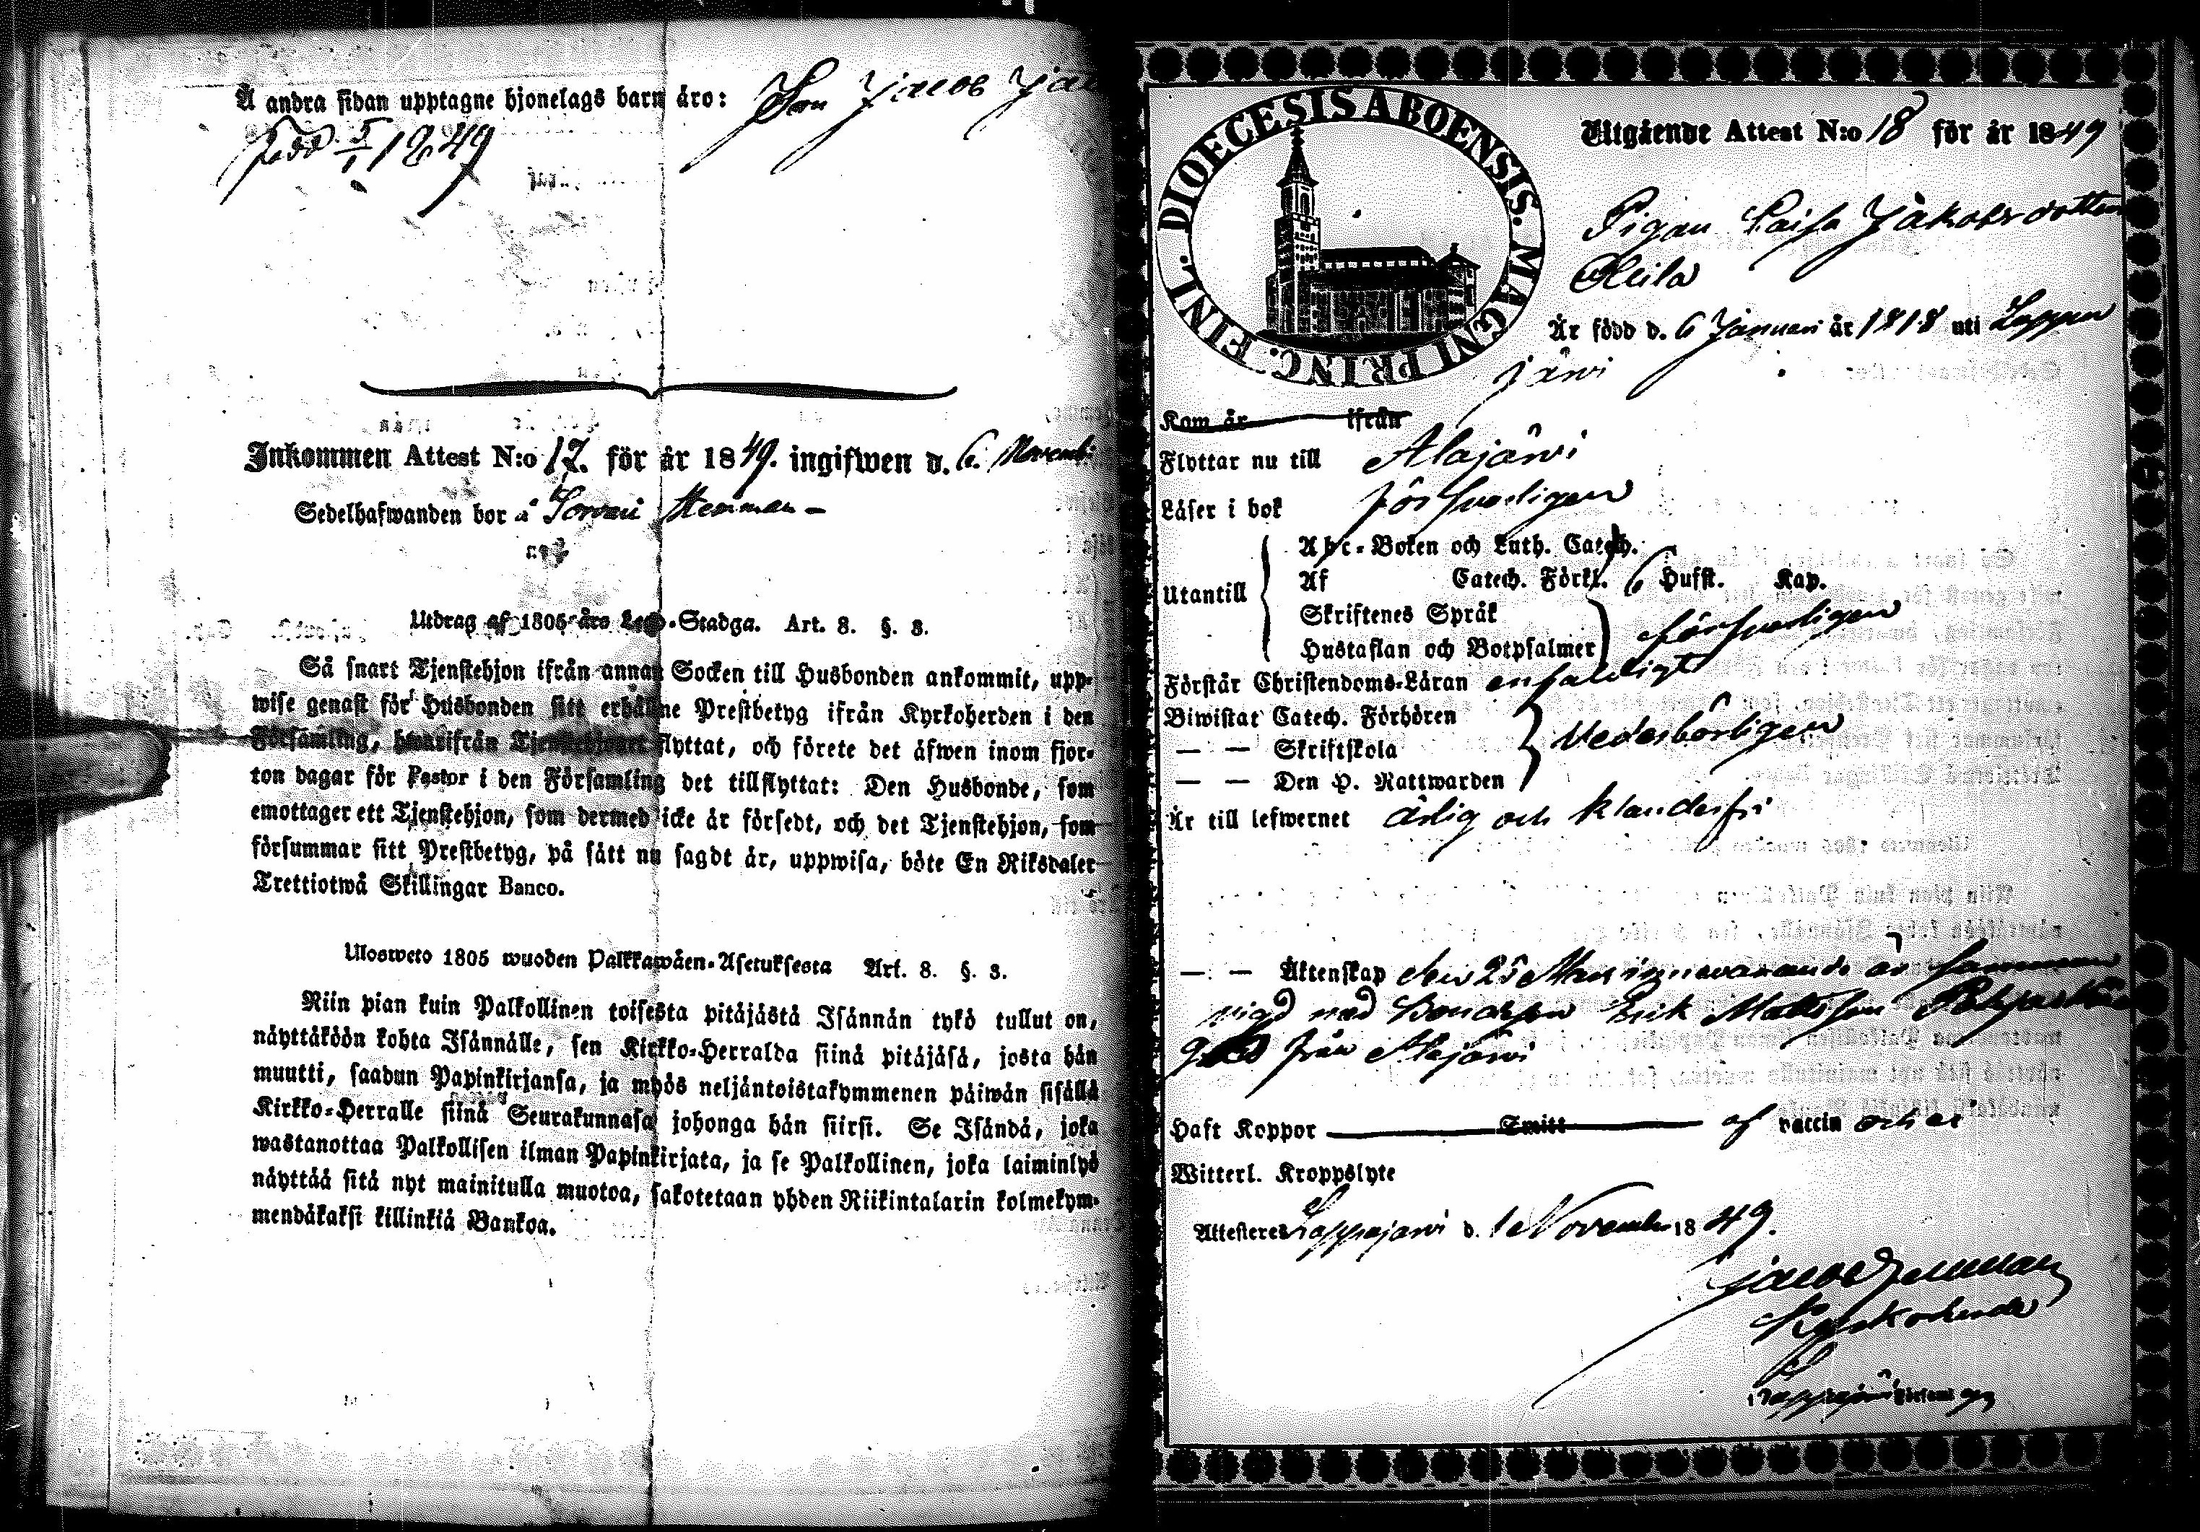 Å andra sidan upptagne hjonelags barn äro: Son Jacob
född 5/1 1849
Inkommen Attest N:o 17. för år 1849. ingifwen d. 6. Novemb
Sedelhafwanden bor å Sorvari Hemman –
Utdrag af 1805 års Lego-Stadga. Art. 8. §. 3.
Så snart Tjenstehjon ifrån annan Socken till Husbonden ankommit, upp-
wise genast för Husbonden sitt erhållne Prestbetyg ifrån Kyrkoherden i den
Församling, hwarifrån Tjenstehjonet flyttat, och förete det äfwen inom fjor-
ton dagar för Pastor i den Församling det tillflyttat: Den Husbonde, som
emottager ett Tjenstehjon, som dermed icke är försedt, och det Tjenstehjon, som
försummar sitt Prestbetyg, på sätt nu sagdt är, uppwisa, böte En Riksdaler
Trettiotwå Skillingar Banco.
Ulosweto 1805 wuoden Palkkawäen-Asetuksesta Art. 8. §. 3.
Niin pian kuin Palkollinen toisesta pitäjästä Isännän tykö tullut on,
näyttäköön kohta Isännälle, sen Kirkko-Herralda siinä pitäjäsä, josta hän
muutti, saadun Papinkirjansa, ja myös neljäntoistakymmenen päiwän sisällä
Kirkko-Herralle siinä Seurakunnasa johonga hän siirsi. Se Isändä, joka
wastanottaa Palkollisen ilman Papinkirjata, ja se Palkollinen, joka laiminlyö
näyttää sitä nyt mainitulla muotoa, sakotetaan yhden Riikintalarin kolmekym-
mendäkaksi killinkiä Bankoa.
DIOECESIS ABOENSIS. MAGNI PRINC. FINL.
Utgående Attest N:o 18 för år 1849
Pigan Caisa Jakobsdotter
Keila
Är född d. 6 Januari år 1818 uti Lappa
järvi
Kom år ifrån
Flyttar nu till Alajärvi
Läser i bok försvarligen
Utantill
Abc-Boken och Luth. Catech.
Af Catech. Förkl. 6 Hufst. Kap.
Skriftenes Språk
Hustaflan och Botpsalmer försvarligen
Förstår Christendoms-Läran enfaldigt
Biwistat Catech. Förhören
— — Skriftskola Vederbörligen
— — Den H. Nattwarden
Är till lefwernet ärlig och klanderfri
— — Äktenskap den 25 Mars innevarande år samman
vigd med Bondeson Erik Mattsson
från Alajärvi
Haft Koppor Smitt af vaccin och är
Witterl. Kroppslyte
Attesteres Lappajärvi d. 1 November 1849.
Kyrkoherde
Lappajärvi Församling